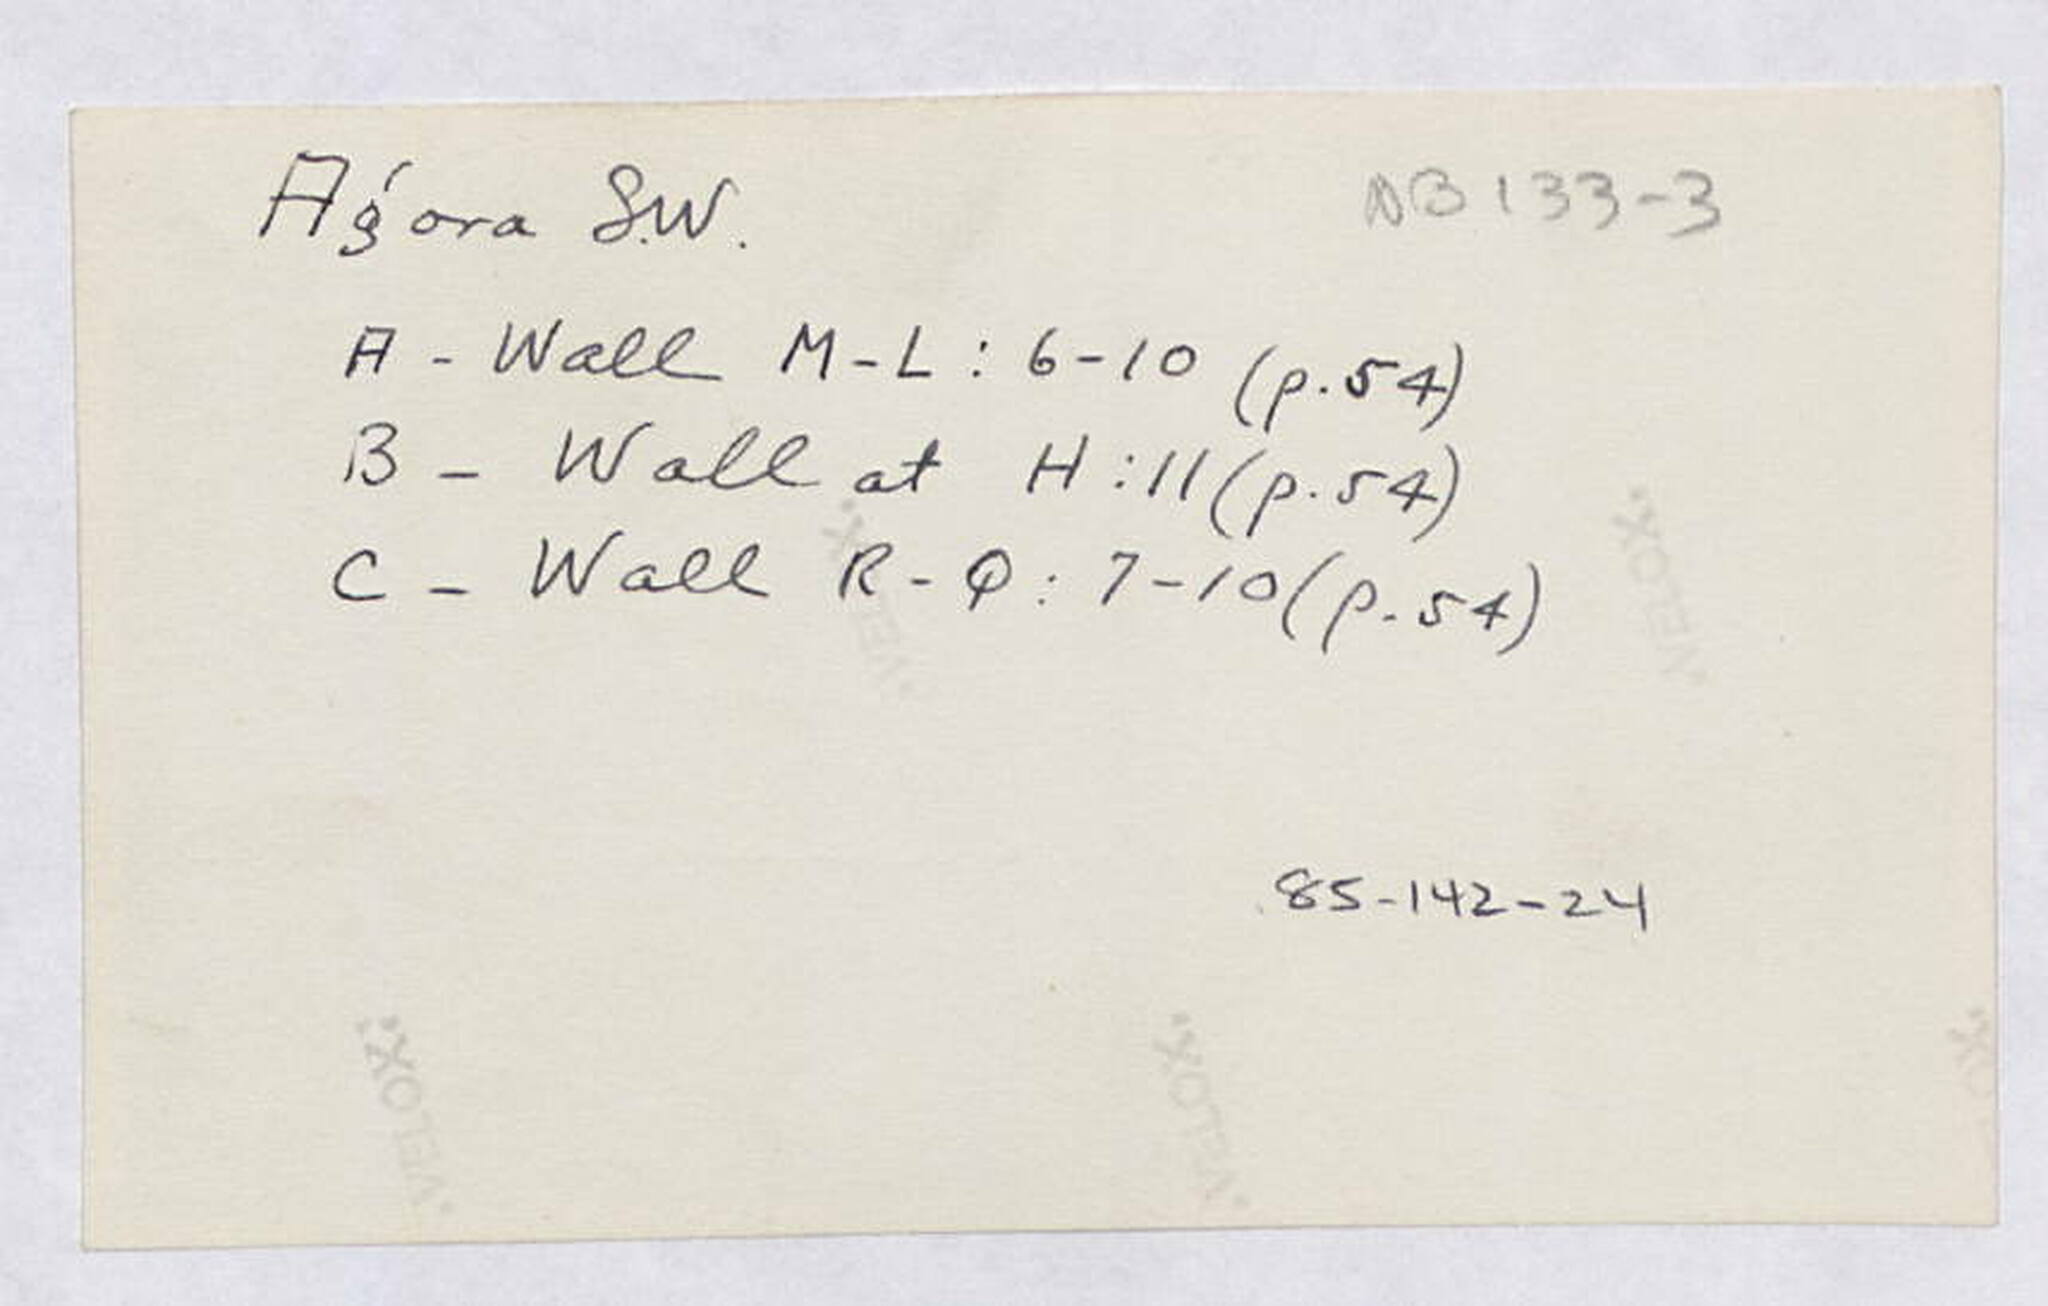 Ágora S.W.
NB 133-3
A - Wall M-L: 6-10 (p.54)
B - Wall at H:11 (p.54)
C - Wall R-Q: 7-10 (p.54)
85-142-24
"VELOX"
"VELOX"
"VELOX"
"VELOX"